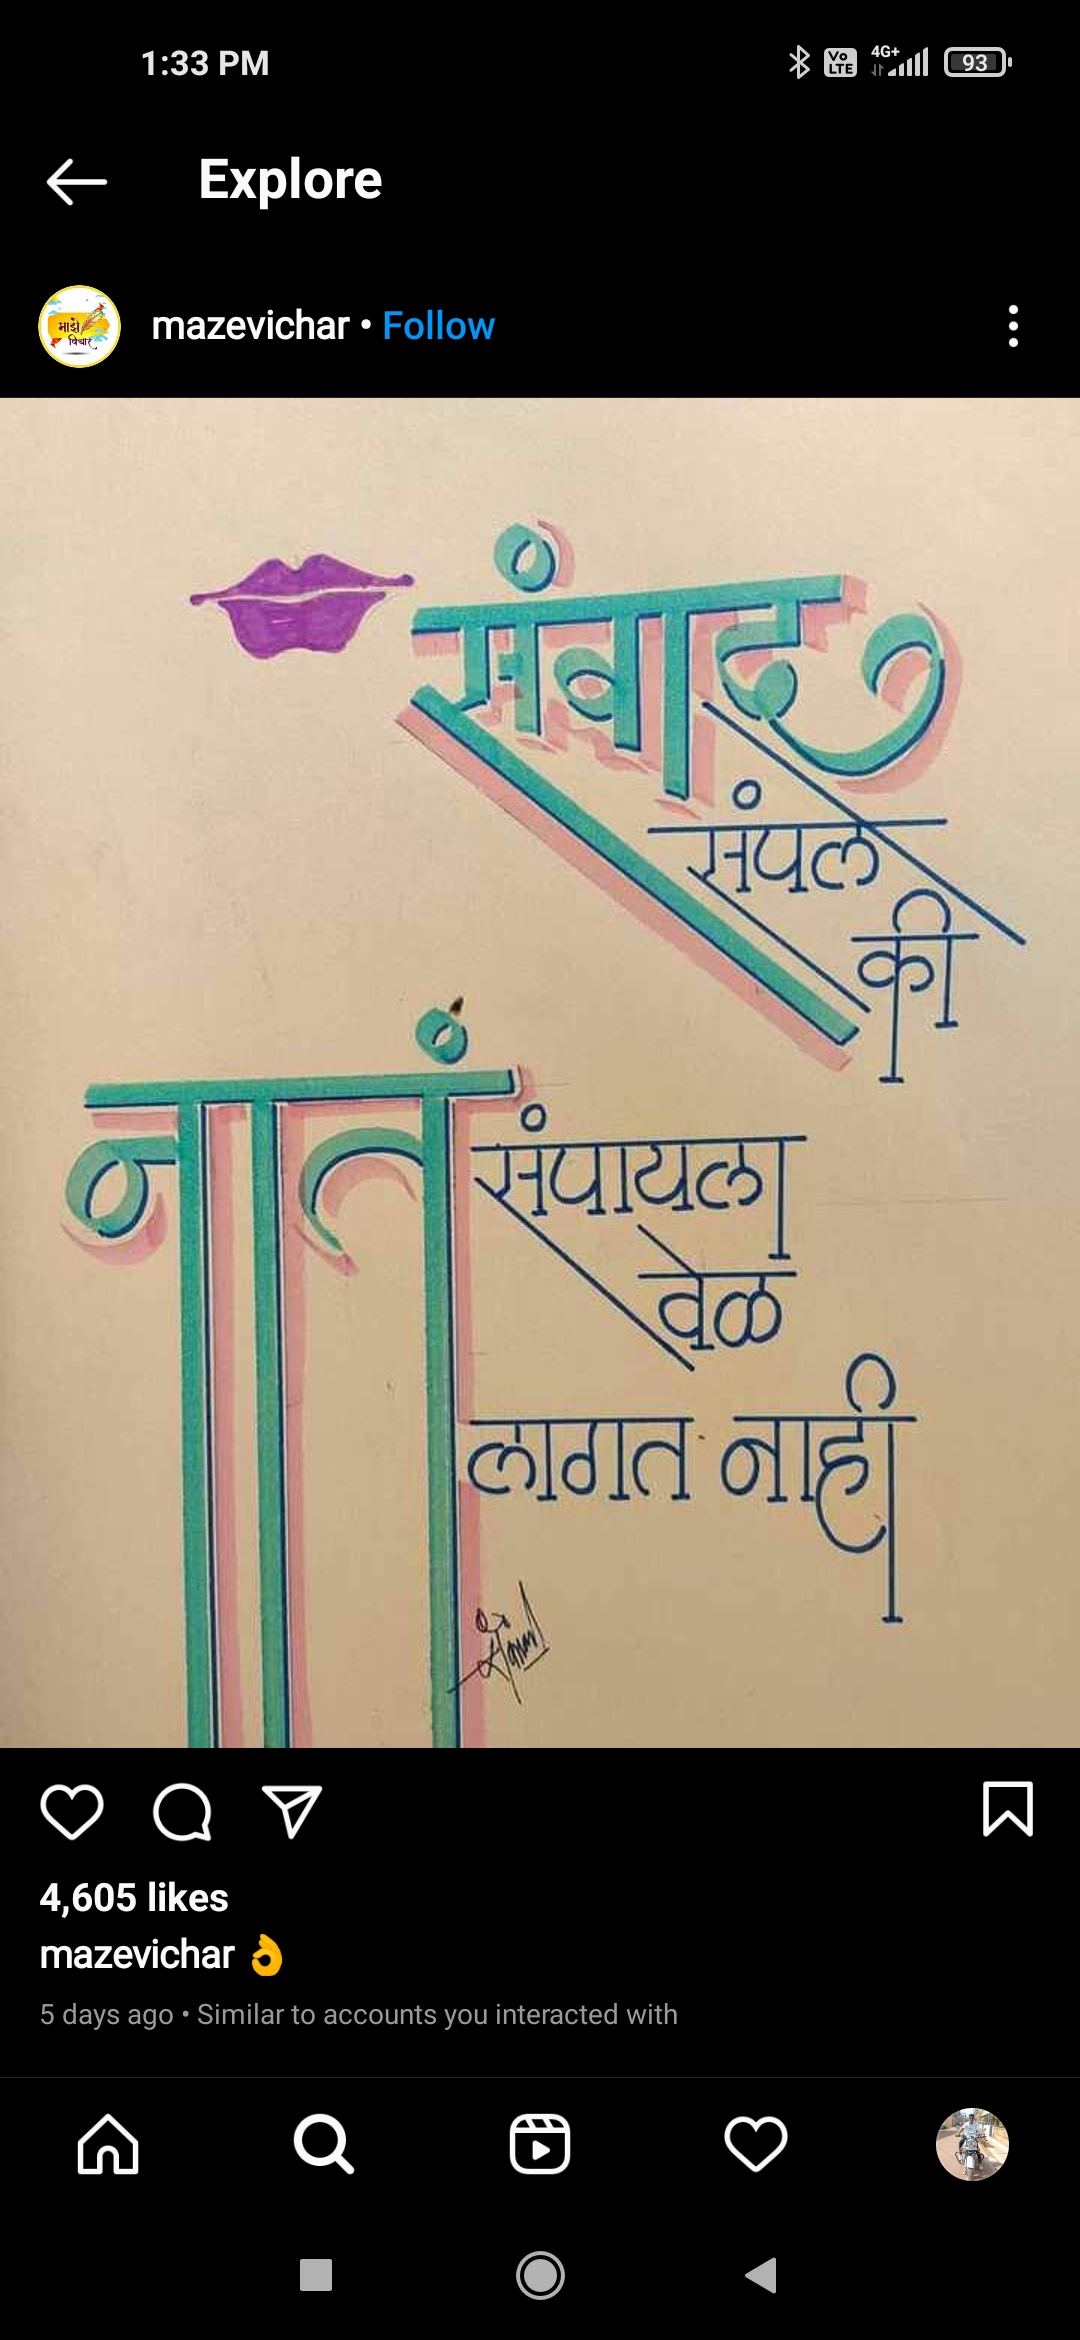 1:33 PM
Vo LTE 4G+ 93
Explore
माझे
विचार
mazevichar • Follow
संवाद
संपल
की
नातं
संपायला
वेळ
लागत नाही
4,605 likes
mazevichar 👌
5 days ago • Similar to accounts you interacted with